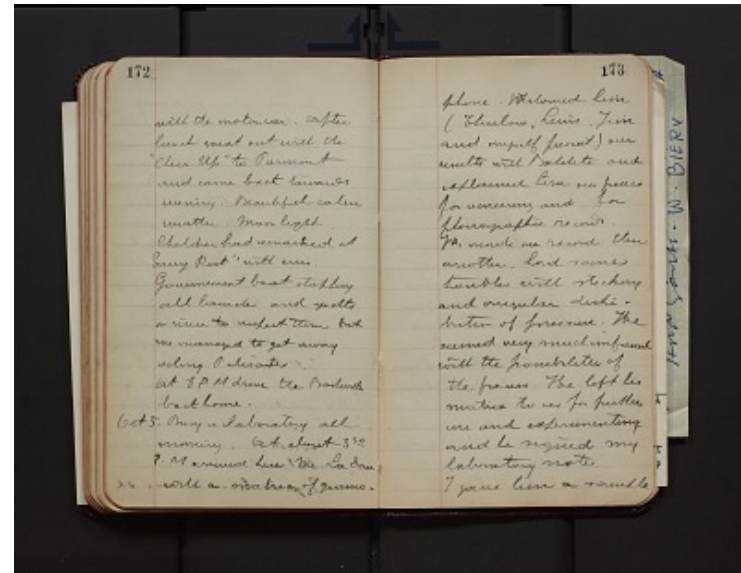 172
with the motorcar. After
lunch went out with the
"Cheer Up" to Piermont
and came back towards
evening. Beautiful calm
weather. Moon light.
had remained at
"Snug Rock" with
Government boat stopping
all launches and yachts
in river to inspect them but
we managed to get away
along Palisades.
At 8 P.M drove the
back home.
Oct 5. Busy in laboratory all
morning. At about 3
P.M arrived here Mr. La
with a of gramo-
173
phone. Welcomed him
(Thurlow, Lewis, Jim
and myself present) our
results with Bakelite and
explained him our process
for veneering and for
phonographic record.
We made one record then
another. had some
troubles with sticking
and irregular distri-
bution of pressure. He
seemed very much impressed
with the possibilities of
the process. He left his
matrix to us for further
use and experimenting
and he signed my
laboratory note.
I gave him a sample
W. BIERV